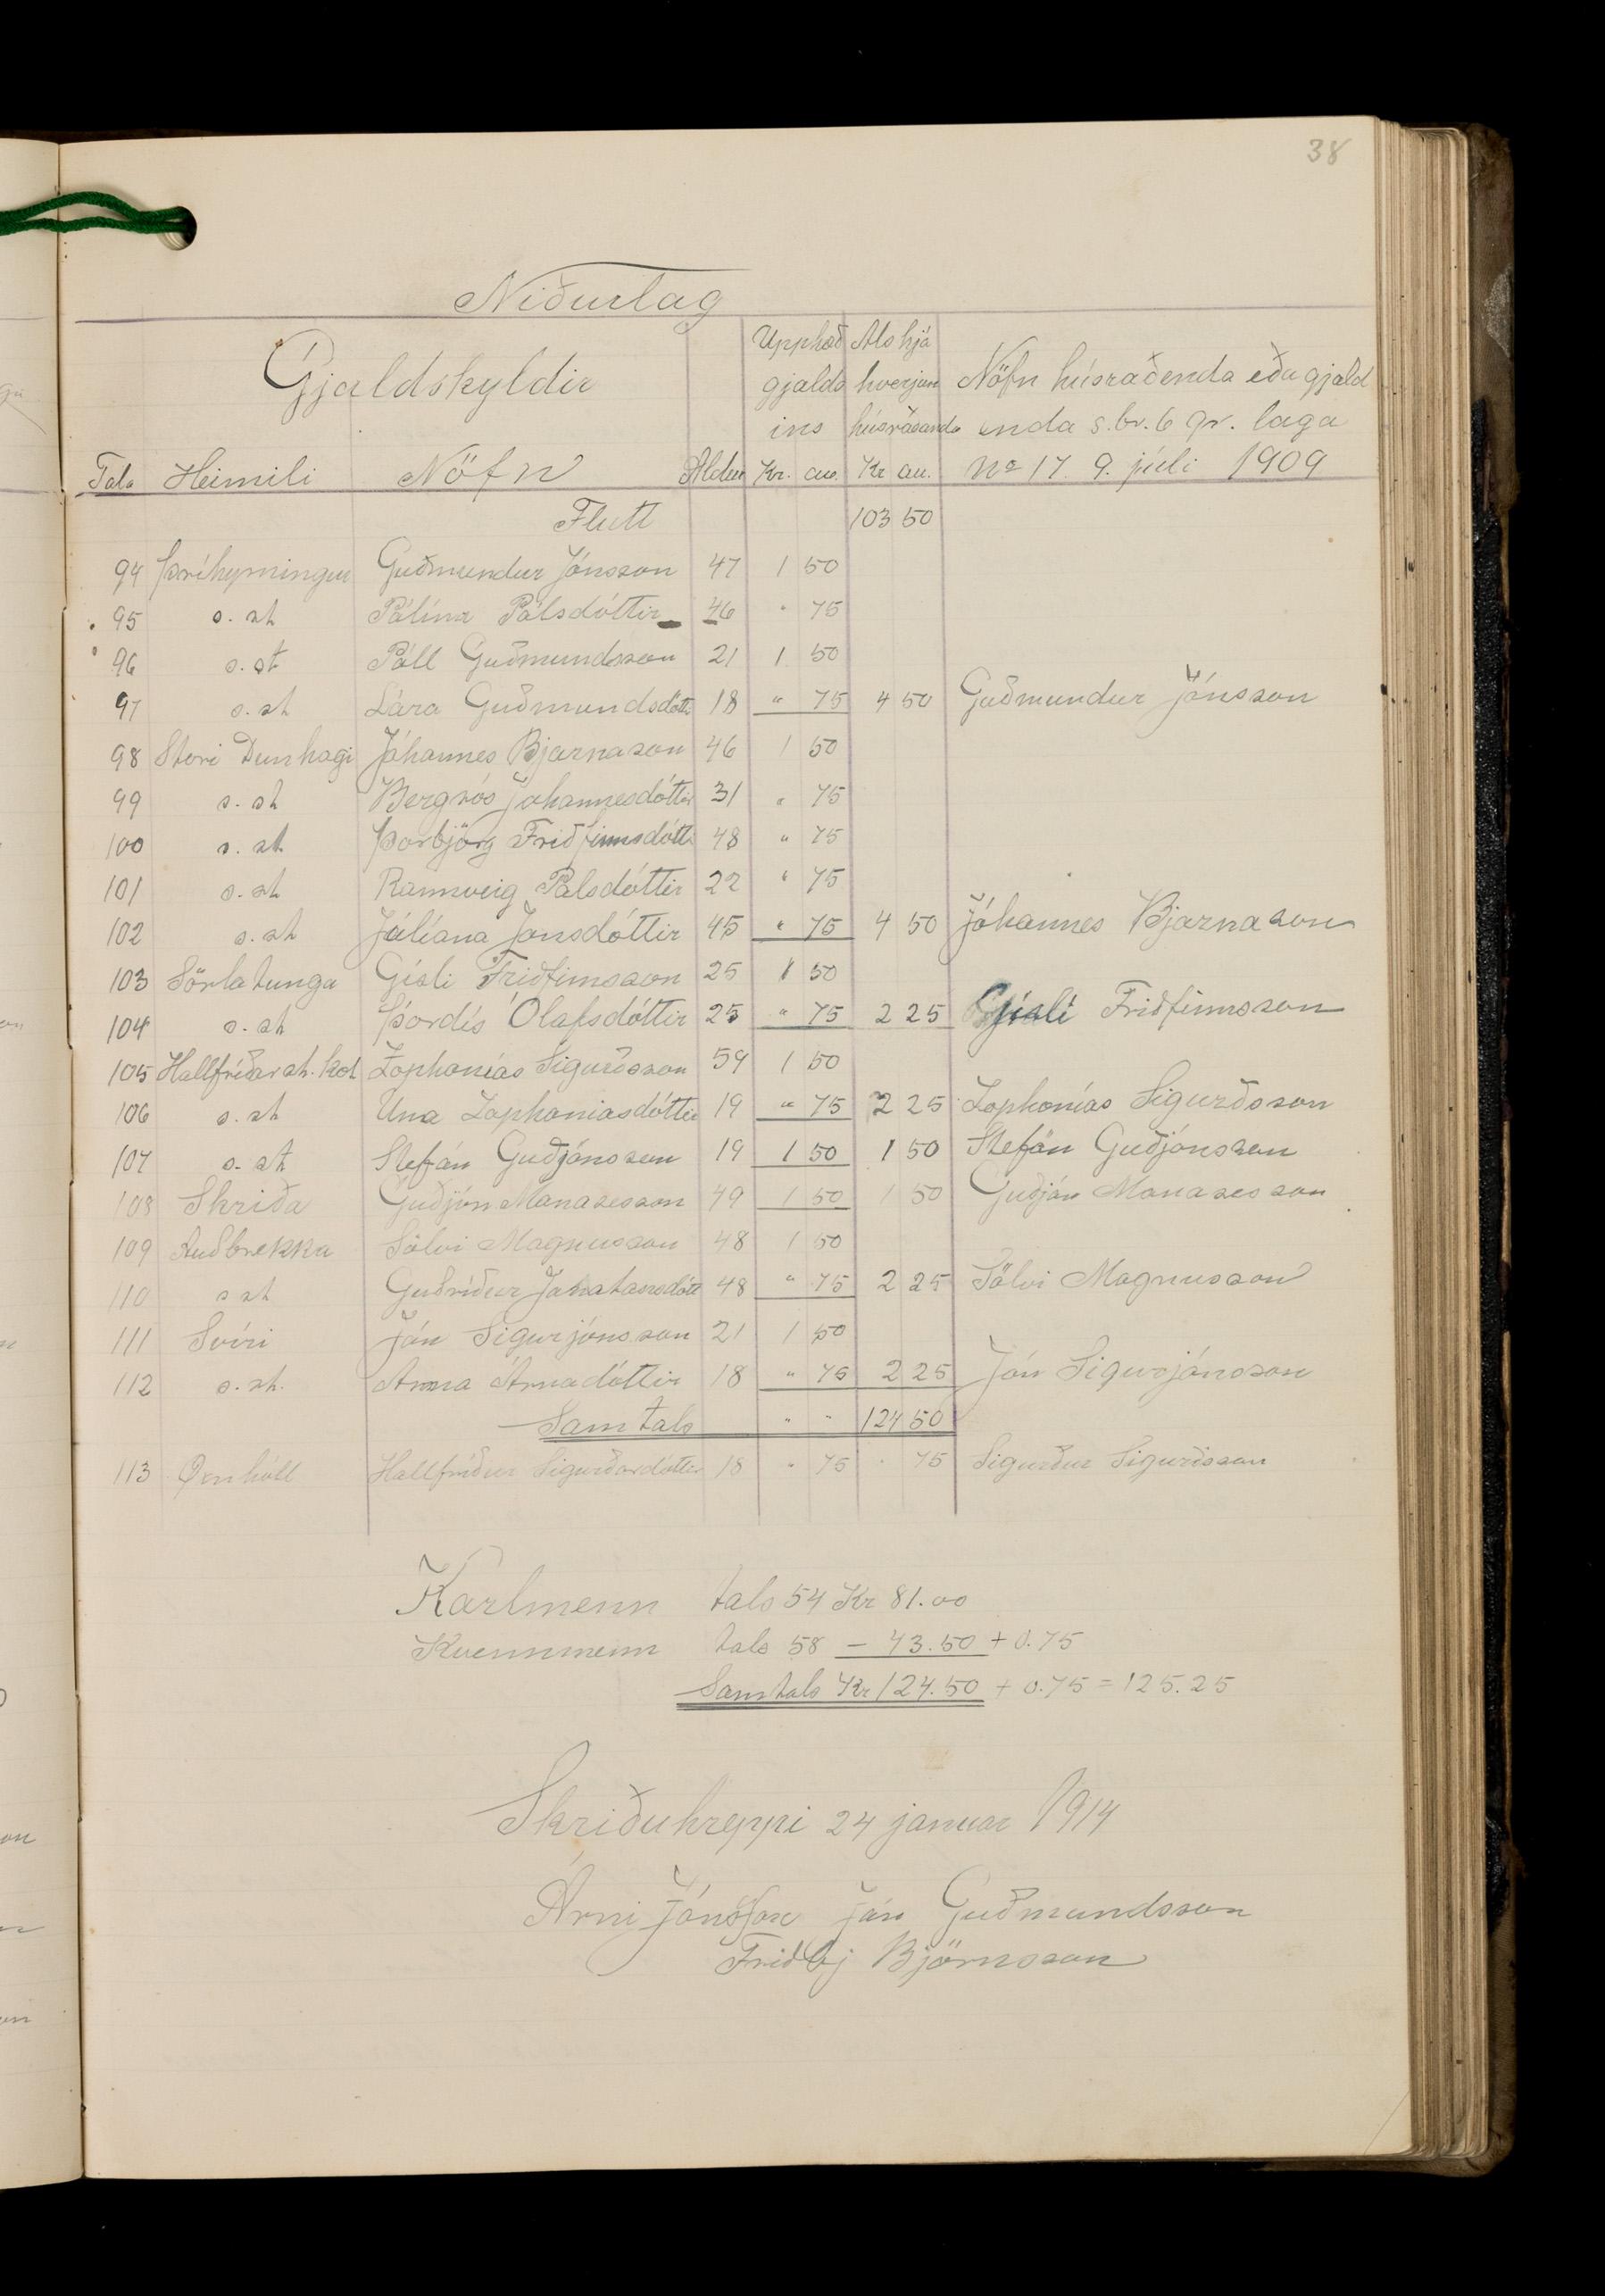 38
Niðurlag
Gjaldskyldir Upphæð Als hjá
gjalds hverjum Nöfn húsraðenda eða gjald
ins húsráðanda enda s.br. 6 gr. laga
Tala Heimili Nöfn Aldur Kr. au. Kr au. No 17. 9. júli 1909
Flutt 103 50
94 Þríhyrningur Guðmundur Jónsson 47 1 50
95 s. st Pálína Pálsdóttir 46 " 75
96 s. st Páll Guðmundsson 21 1 50
97 s. st Lára Guðmundsdótti 18 " 75 4 50 Guðmundur Jónsson
98 Stori Dunhagi Jóhannes Bjarnason 46 1 50
99 s. st Bergrós Jóhannesdóttir 31 " 75
100 s. st Þorbjörg Friðfinnsdótti 48 " 75
101 s. st Rannveig Pálsdóttir 22 " 75
102 s. st Júlíana Jonsdóttir 45 " 75 4 50 Jóhannes Bjarnason
103 Sörlatunga Gísli Friðfinnsson 25 1 50
104 s. st Þordís Ólafsdóttir 25 " 75 2 25 Gísli Friðfinnsson
105 Hallfríðarst. kot Zophonías Sigurðsson 59 1 50
106 s. st Una Zophoniasdóttir 19 " 75 2 25 Zophonías Sigurðsson
107 s. st Stefán Guðjónsson 19 1 50 1 50 Stefán Guðjónsson
108 Skriða Guðjón Manasesson 49 1 50 1 50 Guðjón Manasesson
109 Auðbrekka Sölvi Magnusson 48 1 50
110 s st Guðríður Jónatansdótt 48 " 75 2 25 Sölvi Magnusson
111 Svíri Jón Sigurjónsson 21 1 50
112 s. st. Anna Árnadóttir 18 " 75 2 25 Jón Sigurjónsson
Samtals " " 124 50
113 Hallfríður Sigurðardóttir 18 " 75 " 75 Sigurður Sigurðsson
Karlmenn tals 54 Kr 81.00
Kvennmenn tals 58 — 43.50 + 0.75
Samtals Kr 124.50 + 0.75 = 125.25
Skriðuhreppi 24 januar 1914
Árni Jónsson Jón Guðmundsson
Friðbj Björnsson